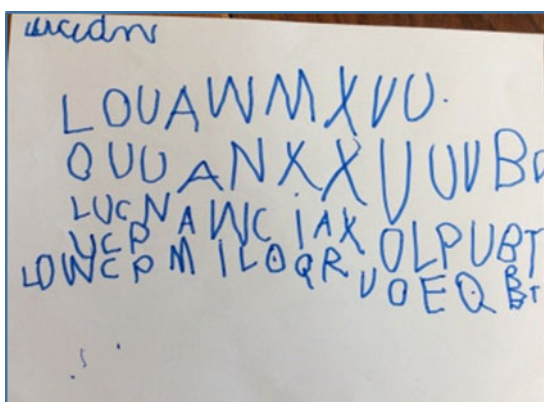 LOUAWMXVU.
QUUANXXUUUB
LUCNAWCIAX
UCP OLPUBT
LOWCPMILOQR
VOEQBT